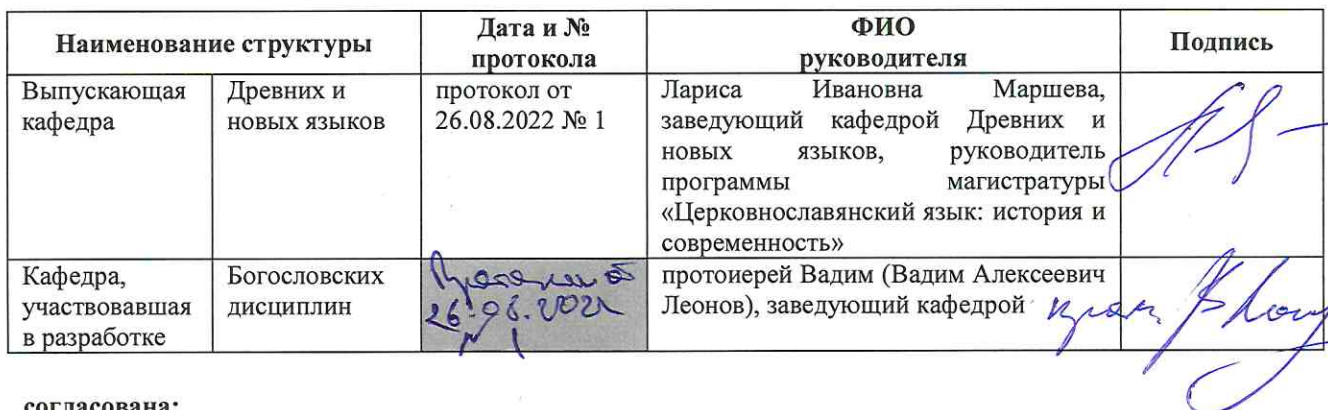 Наименование структуры
Дата и №
протокола
ФИО
руководителя
Подпись
Выпускающая
кафедра
Древних и
новых языков
протокол от
26.08.2022 № 1
Лариса Ивановна Маршева,
заведующий кафедрой Древних и
новых языков, руководитель
программы магистратуры
«Церковнославянский язык: история и
современность»
Кафедра,
участвовавшая
в разработке
Богословских
дисциплин
Протокол от
26.08.2022
№ 1
протоиерей Вадим (Вадим Алексеевич
Леонов), заведующий кафедрой
согласована: